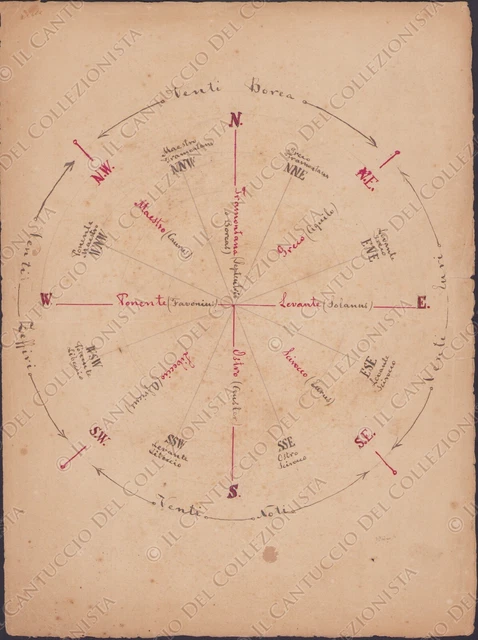 Venti Borea
N.
Maestro
Tramontana
NNW
Greco
Tramontana
NNE
N.W.
N.E.
Tramontana
Maestro
Greco (Aquilo)
Ponente
Maestro
WNW
Levante
Greco
ENE
Venti
Zeffiri
W.
Ponente (Favonius)
Levante (Solanus)
E.
Venti
WSW
Ponente
Libeccio
Libeccio
Ostro (Auster)
Scirocco
ESE
Levante
Scirocco
S.W.
S.E.
SSW
Libeccio
SSE
Ostro
S.
Venti Noti
© Il Cantuccio Del Collezionista